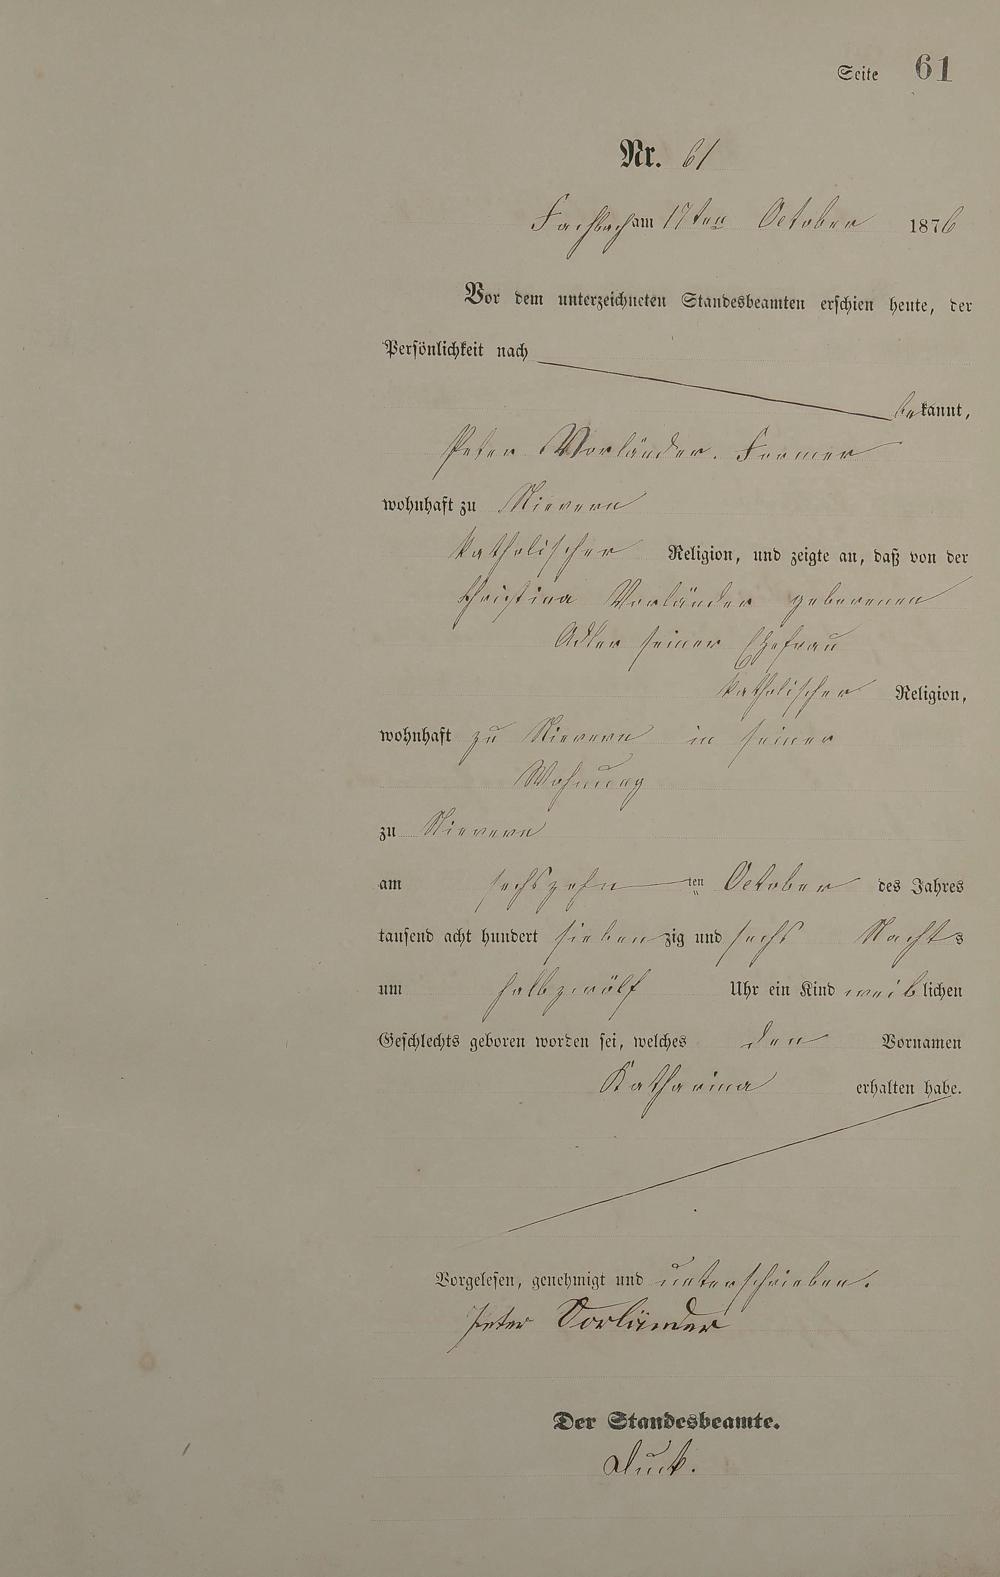 Seite 61
Nr. 61
Fachbach am 17ten October 1876
Vor dem unterzeichneten Standesbeamten erschien heute, der
Persönlichkeit nach
bekannt,
Peter Vorländer. Former
wohnhaft zu Nievern
katholischer Religion, und zeigte an, daß von der
Christina Vorländer geborenen
Adler seiner Ehefrau
katholischer Religion,
wohnhaft zu Nievern in seiner
Wohnung
zu Nievern
am sechszehnten October des Jahres
tausend acht hundert siebenzig und sechs Nachts
um halbzwölf Uhr ein Kind weiblichen
Geschlechts geboren worden sei, welches den Vornamen
Katharina erhalten habe.
Vorgelesen, genehmigt und unterschrieben.
Peter Vorländer
Der Standesbeamte.